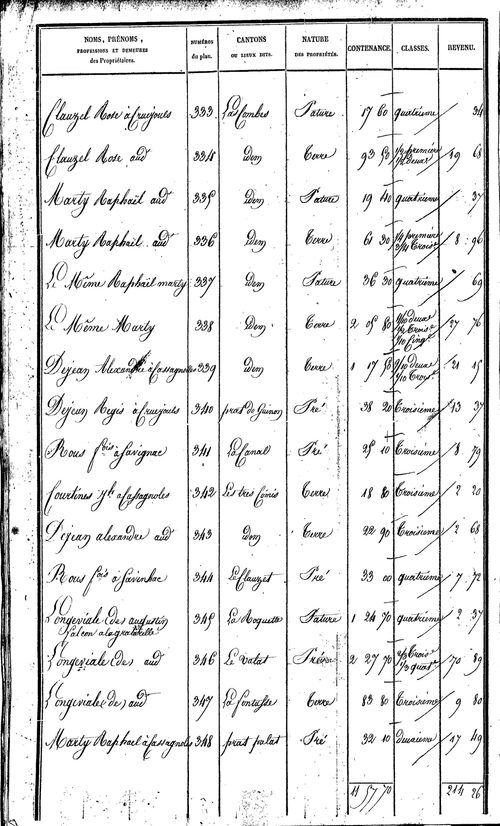 NOMS, PRÉNOMS, PROFESSIONS ET DEMEURES des Propriétaires. NUMÉROS du plan. CANTONS OU LIEUX DITS. NATURE DES PROPRIÉTÉS. CONTENANCE. CLASSES. REVENU.
Clauzel Rose à Cruejouls 333 Las Combes Pature 17 60 quatrième 34
Clauzel Rose aud 334 idem Terre 93 50 1/2 première 1/2 deuxe 39 68
Marty Raphaël aud 335 idem Pature 19 40 quatrième 37
Marty Raphaël aud 336 idem Terre 61 30 1/4 première 3/4 Troise 8 96
Le Même Raphaël marty 337 idem Pature 36 30 quatrième 69
Le Même Marty 338 idem Terre 2 05 80 27 76
Dejean Alexandre à Cassagnoles 339 idem Terre 1 17 50 21 15
Dejean Regis à Cruejouls 340 Pré 38 20 Troisième 13 37
Rous fois à Lavignac 341 La Canal Pré 25 10 Troisième 8 79
Courtines à Cassagnoles 342 Les tres Terre 18 80 Troisième 2 20
Dejean alexandre aud 343 idem Terre 22 90 Troisième 2 68
Rous fois à Lavinhac 344 Le Clauzet Pré 33 00 quatrième 7 72
Longeviale (de) augustin 345 La Roquette Pature 1 24 70 quatrième 2 37
Longeviale (de) aud 346 Le valat 2 27 70 2/3 Trois 1/3 quat 70 89
Longeviale (de) aud 347 Terre 83 80 Troisième 9 80
Marty Raphaël à Cassagnoles 348 prat palat Pré 32 10 deuxième 17 49
11 57 70 214 26